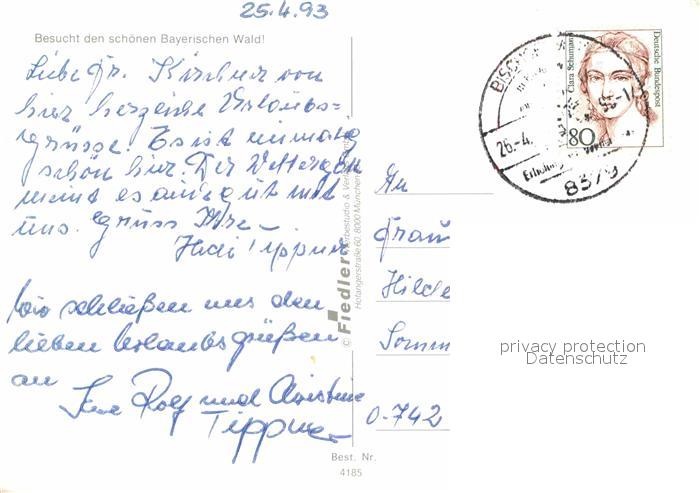 25.4.93
Besucht den schönen Bayerischen Wald!
Liebe Fr. Kirchner von
hier herzliche Urlaubs=
grüsse. Es ist einmalig
schön hier. Der Wettergott
meint es auch gut mit
uns. Gruss Ihre
Heidi Tippner
Wir schließen uns den
lieben Urlaubsgrüßen
an
Ihre Rolf und Christine
Tippner
© Fiedler Werbestudio & Verlag GmbH
Hofangerstraße 60, 8000 München
Best. Nr.
4185
Deutsche Bundespost
Clara Schumann
80
BISCHOFS
26.-4.
Erholung
8379
An
Frau
Hilde
Somm
O-742
privacy protection
Datenschutz